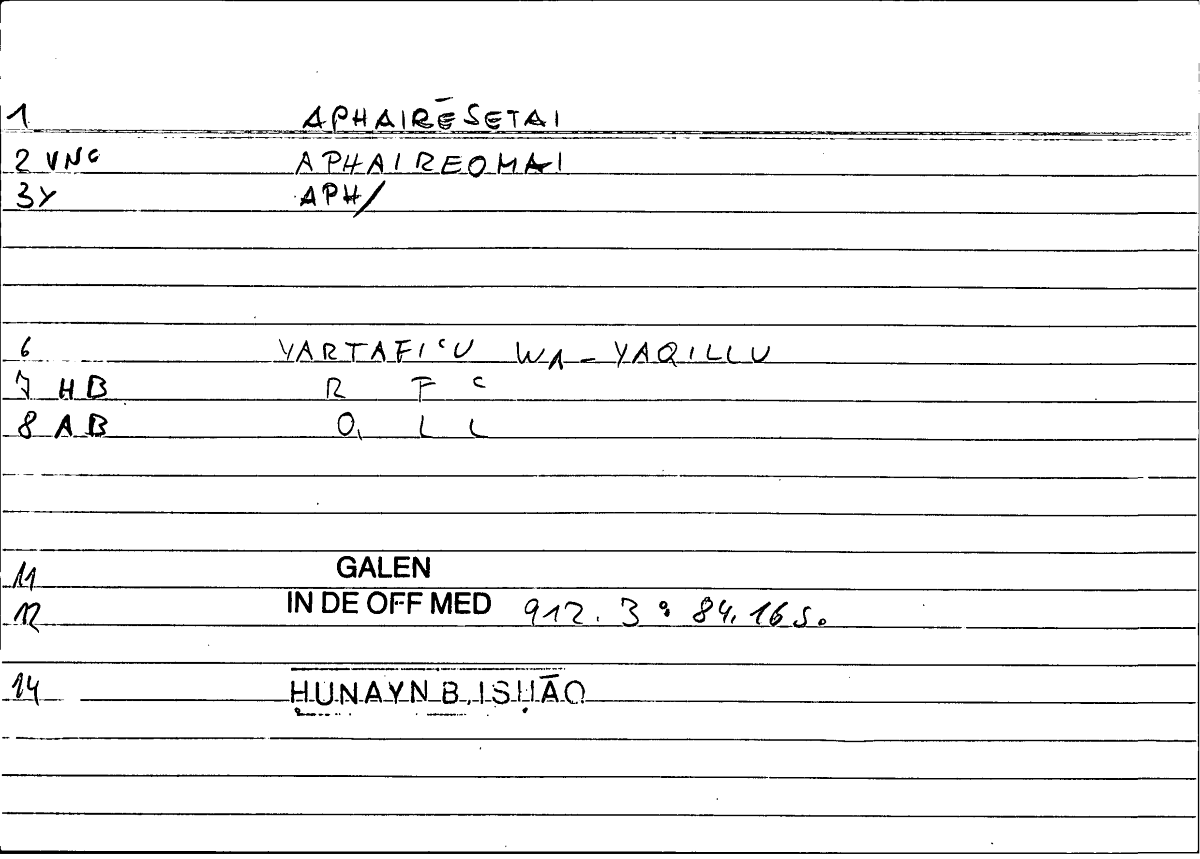 1 APHAIRĒSETAI
2 VNC APHAIREOMAI
3Y APH/
6 YARTAFIʿU WA-YAQILLU
7 HB R F ʿ
8 AB Q L L
11 GALEN
12 IN DE OFF MED 912.3 : 84.16 s.
14 ḤUNAYN B. ISḤĀQ